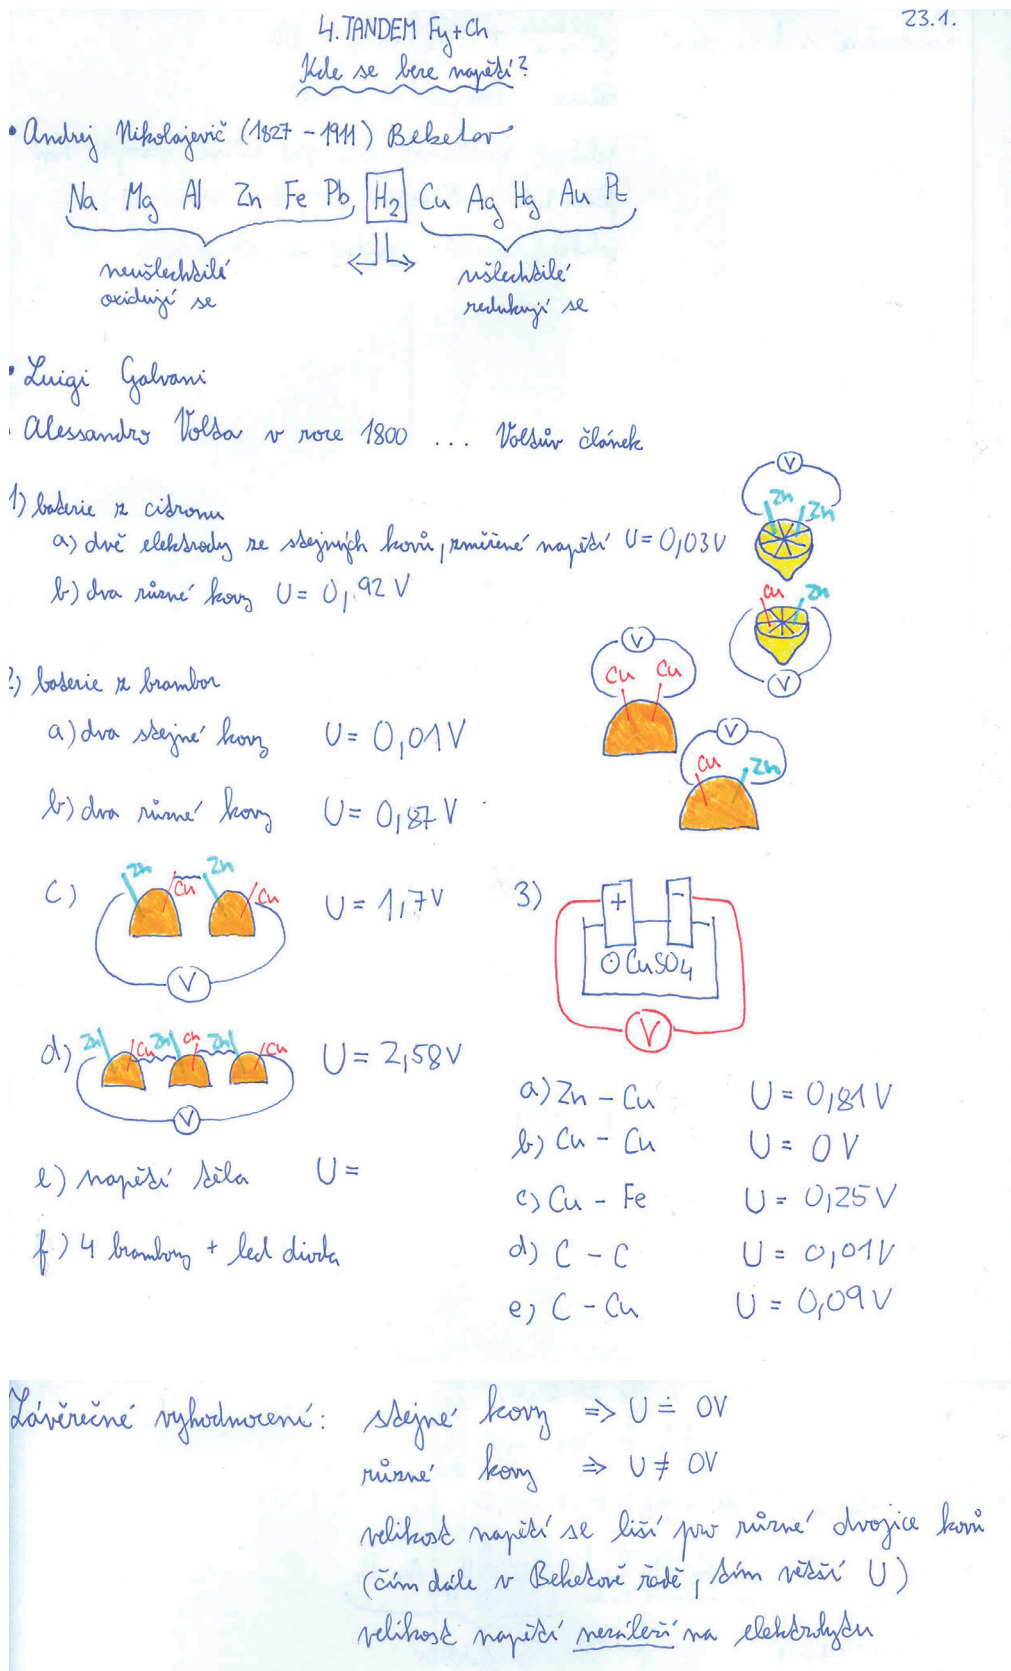 4. TANDEM Fy+Ch
23.1.
Kde se bere napětí?
• Andrej Nikolajevič (1827 - 1911) Beketov
Na Mg Al Zn Fe Pb H2 Cu Ag Hg Au Pt
neušlechtilé
oxidují se
ušlechtilé
redukují se
• Luigi Galvani
• Alessandro Volta v roce 1800 ... Voltův článek
1) baterie z citronu
a) dvě elektrody ze stejných kovů, změřené napětí U = 0,03V
b) dva různé kovy U = 0,92 V
V
Zn Zn
Cu Zn
V
2) baterie z brambor
a) dva stejné kovy U = 0,01V
V
Cu Cu
b) dva různé kovy U = 0,87 V
V
Cu Zn
c) Zn Cu Zn Cu U = 1,7V
V
d) Zn Cu Zn Cu Zn Cu U = 2,58V
V
e) napětí těla U =
f) 4 brambory + led dioda
3) + -
⊙ CuSO4
V
a) Zn - Cu U = 0,81 V
b) Cu - Cu U = 0 V
c) Cu - Fe U = 0,25 V
d) C - C U = 0,01V
e) C - Cu U = 0,09 V
Závěrečné vyhodnocení: stejné kovy => U ≐ 0V
různé kovy => U ≠ 0V
velikost napětí se liší pro různé dvojice kovů
(čím dále v Beketově řadě, tím větší U)
velikost napětí nezáleží na elektrolytu